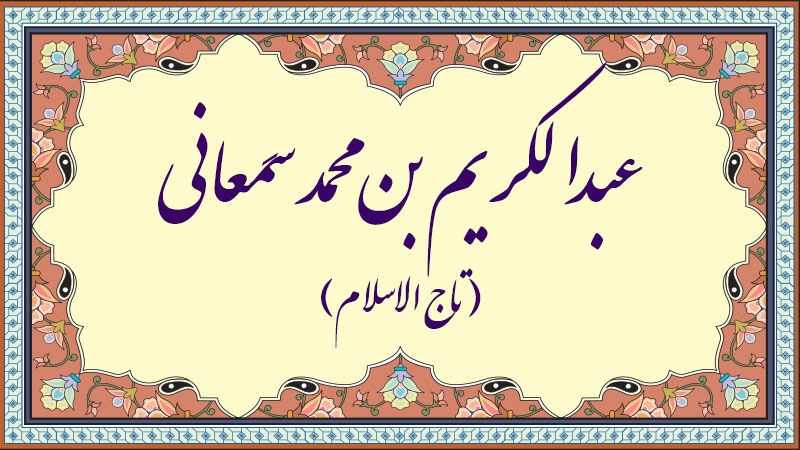 عبدالکریم بن محمد سمعانی
(تاج الاسلام)